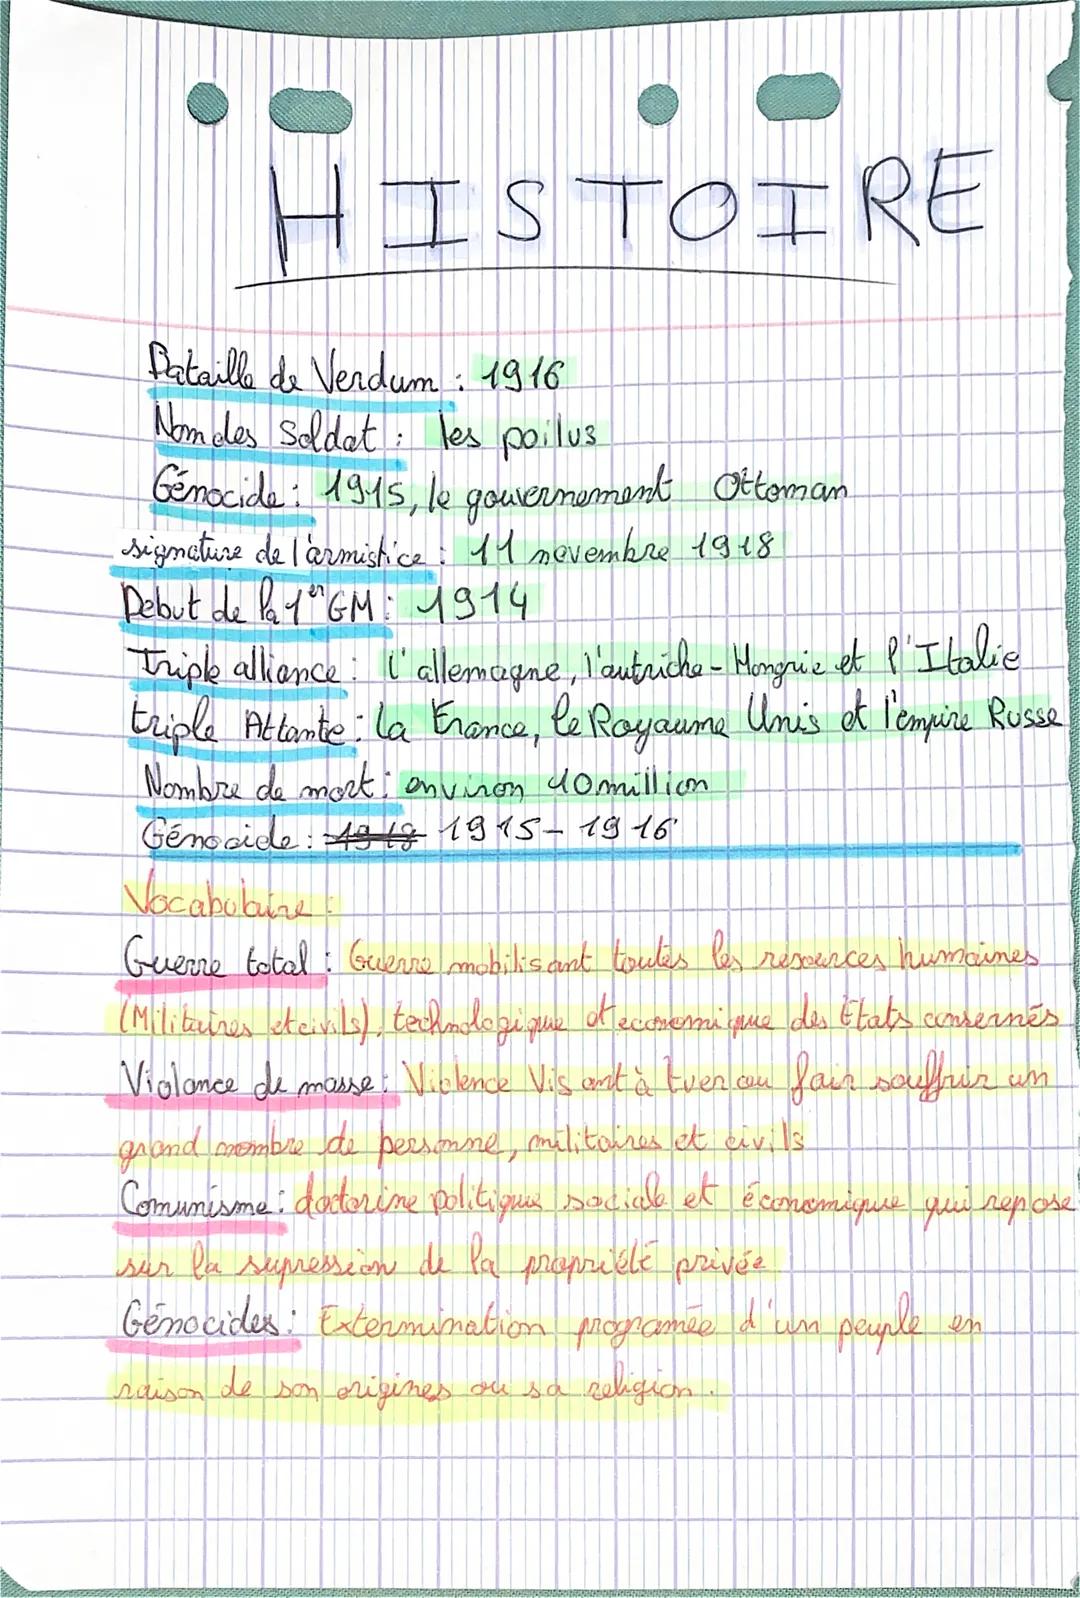 HISTOIRE
Bataille de Verdum : 1916
Nom des Soldat : les poilus
Génocide : 1915, le gouvernement Ottoman
signature de l'armistice : 11 novembre 1918
Debut de la 1er GM : 1914
Triple alliance : l'allemagne, l'autriche-Hongrie et l'Italie
triple Attante : la France, le Royaume Unis et l'empire Russe
Nombre de mort : environ 10 million
Génocide : 1918 1915-1916
Vocabulaire :
Guerre total : Guerre mobilisant toutes les resources humaines
(Militaires et civils), technologique et economique des États consernés
Violance de masse : Violence Visant à tuer ou fair souffrir un
grand nombre de personne, militaires et civils
Comunisme : doctorine politique sociale et économique qui repose
sur la supression de la propriété privée
Génocides : Extermination programée d'un peuple en
raison de son origines ou sa religion.